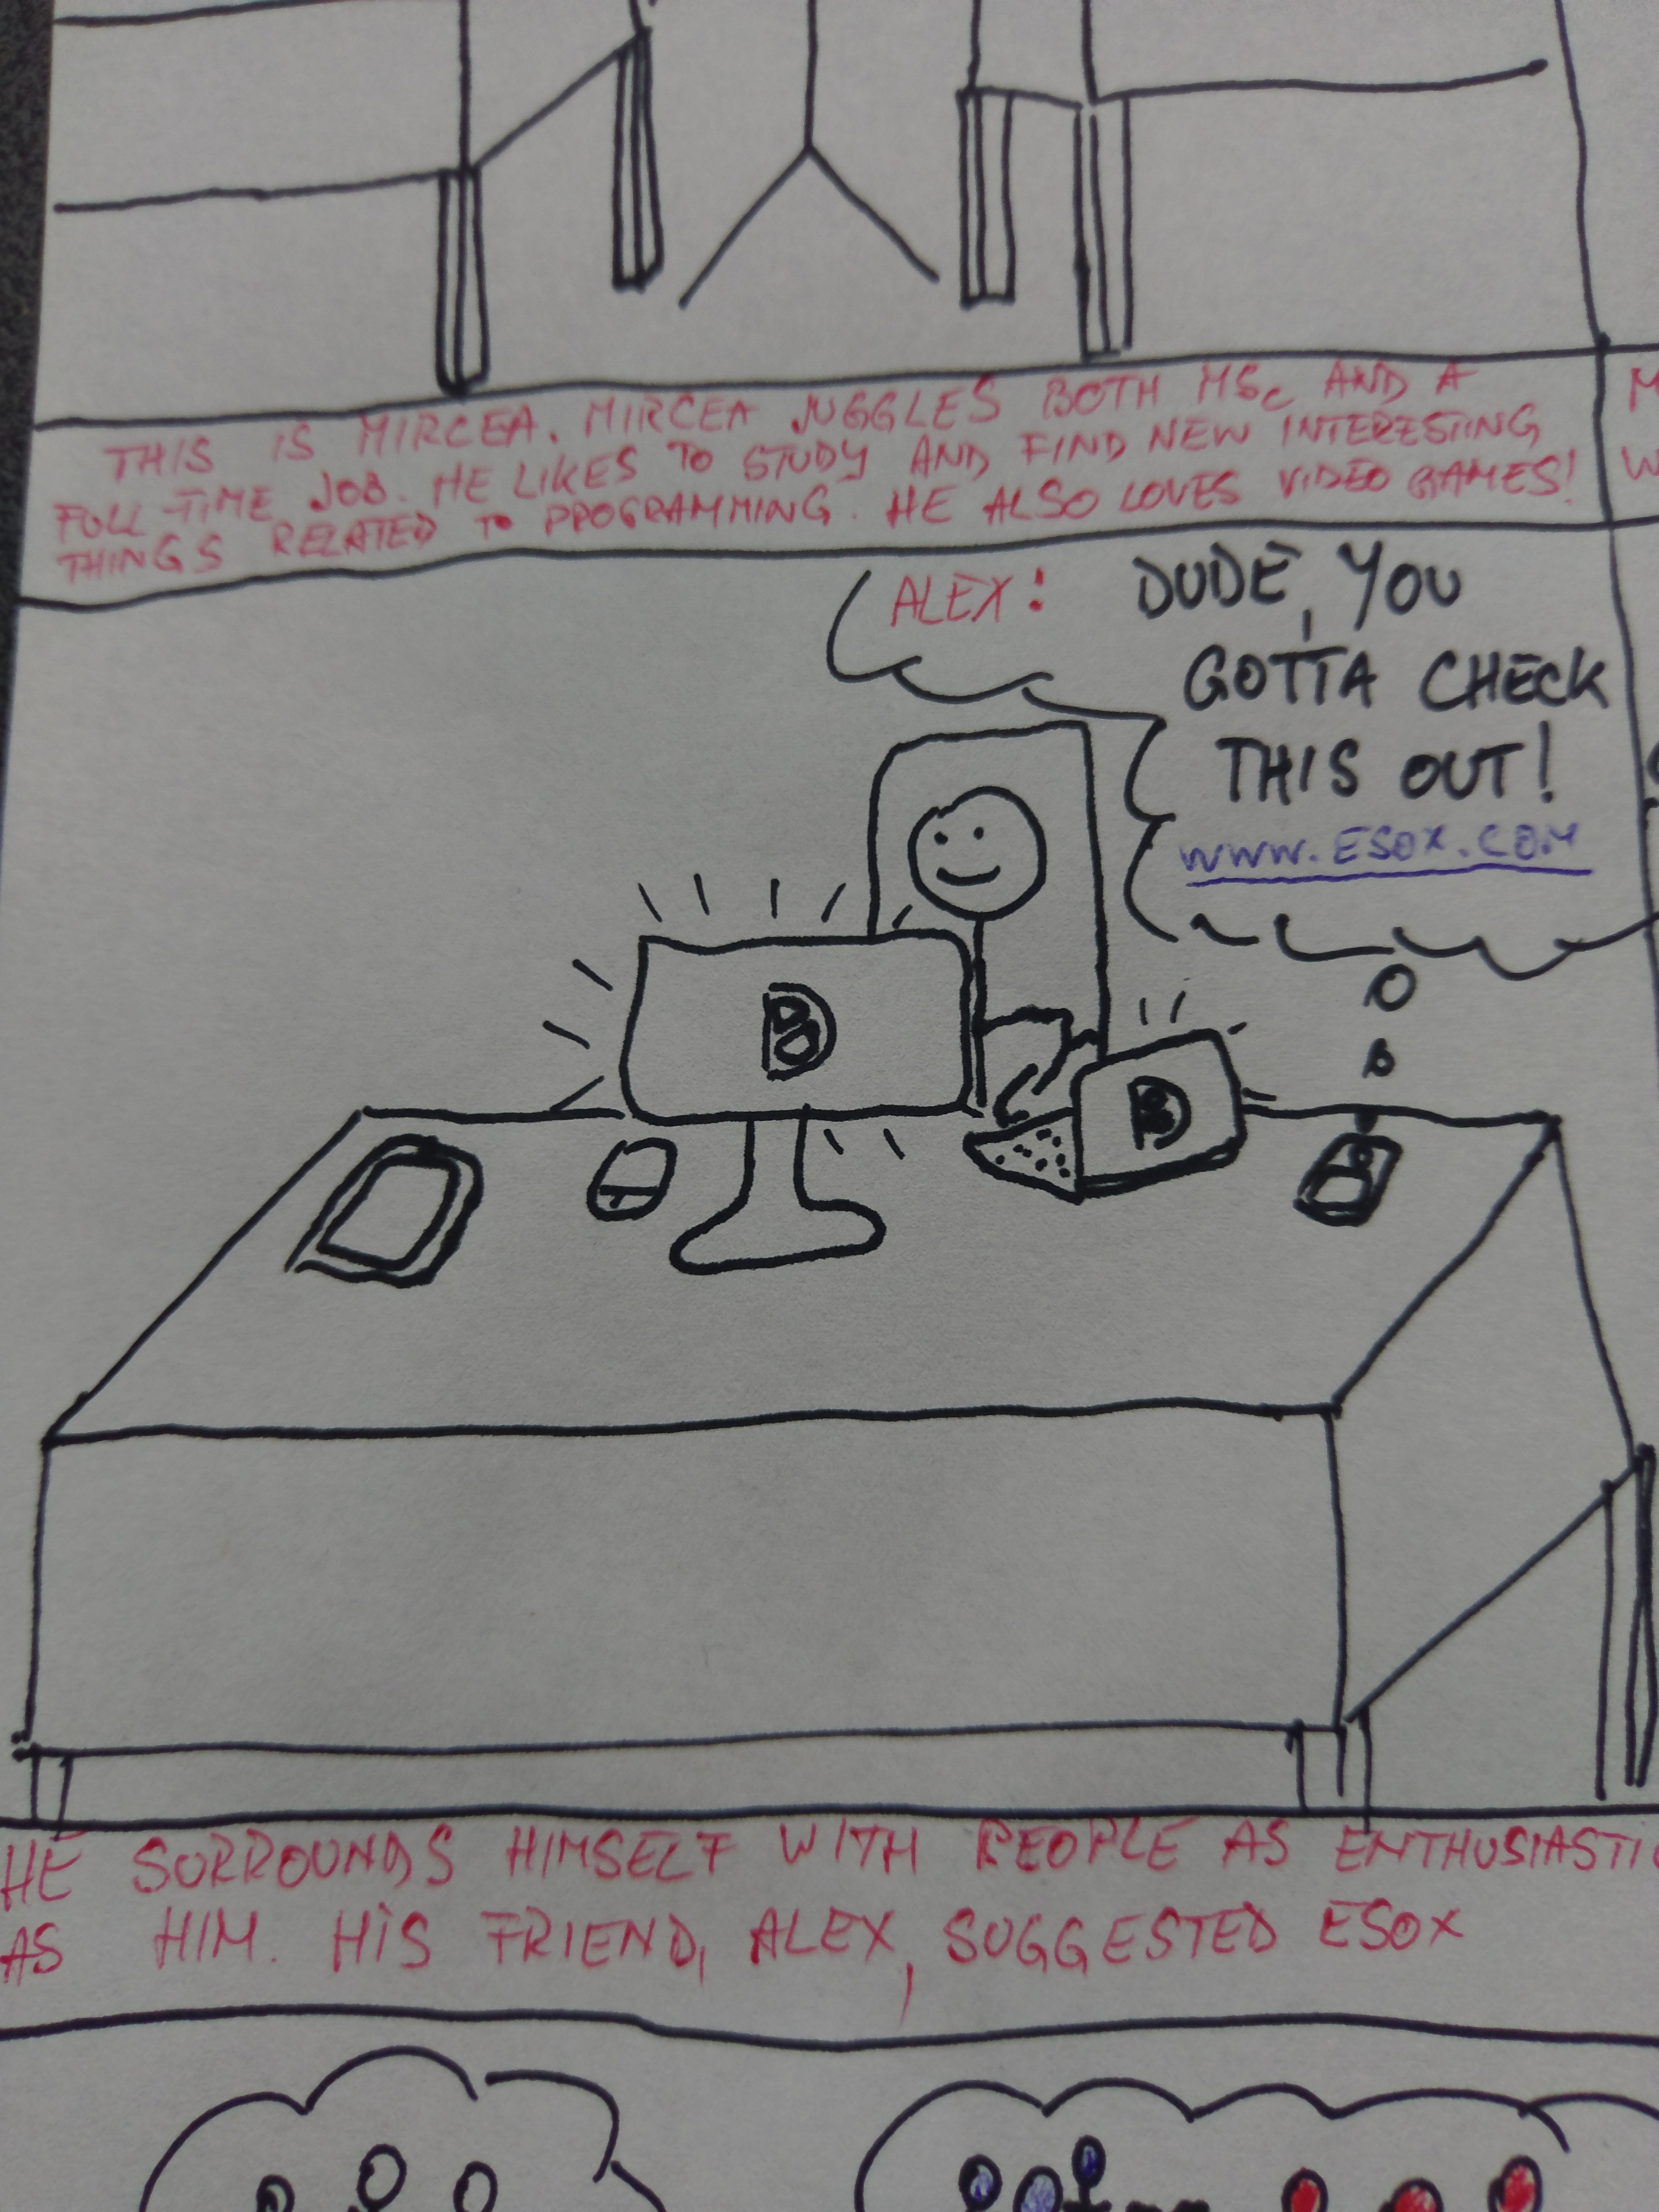 THIS IS MIRCEA. MIRCEA JUGGLES BOTH MSc AND A
FULL-TIME JOB. HE LIKES TO STUDY AND FIND NEW INTERESTING
THINGS RELATED TO PROGRAMMING. HE ALSO LOVES VIDEO GAMES!
M
W
ALEX: DUDE, YOU
GOTTA CHECK
THIS OUT!
WWW.ESOX.COM
B
B
HE SURROUNDS HIMSELF WITH PEOPLE AS ENTHUSIASTIC
AS HIM. HIS FRIEND, ALEX, SUGGESTED ESOX